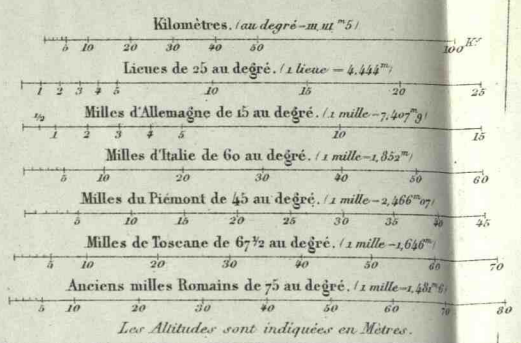 Kilomètres. (au degré = 111,111m5)
5 10 20 30 40 50 100 Ktr
Lieues de 25 au degré. (1 lieue = 4,444m)
1 2 3 4 5 10 15 20 25
Milles d'Allemagne de 15 au degré. (1 mille = 7,407m9)
1/2 1 2 3 4 5 10 15
Milles d'Italie de 60 au degré. (1 mille = 1,852m)
5 10 20 30 40 50 60
Milles du Piémont de 45 au degré. (1 mille = 2,466m07)
5 10 15 20 25 30 35 40 45
Milles de Toscane de 67 1/2 au degré. (1 mille = 1,646m)
5 10 20 30 40 50 60 70
Anciens milles Romains de 75 au degré. (1 mille = 1,481m6)
5 10 20 30 40 50 60 70 80
Les Altitudes sont indiquées en Mètres.